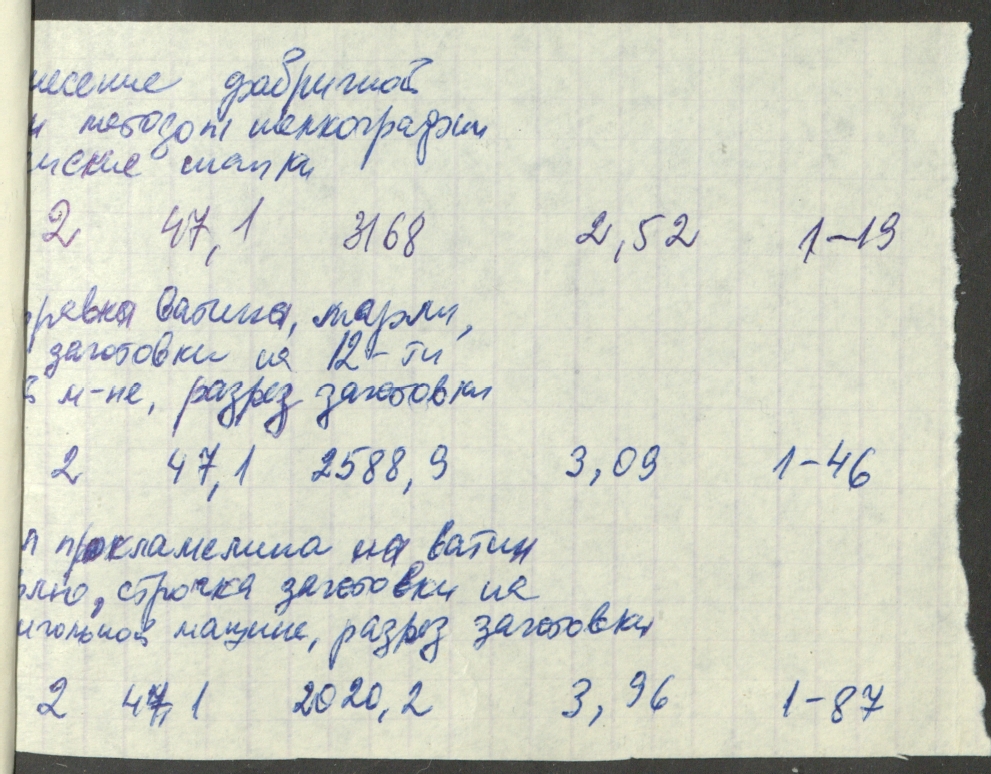 несение фабричной
и методом шелкографии
ские шапки
2 47,1 3168 2,52 1-19
ровка ватина, марли,
заготовки на 12-ти
в м-не, разрез заготовки
2 47,1 2588,9 3,09 1-46
на ватин
строчка заготовки на
игольной машине, разрез заготовки
2 47,1 2020,2 3,96 1-87